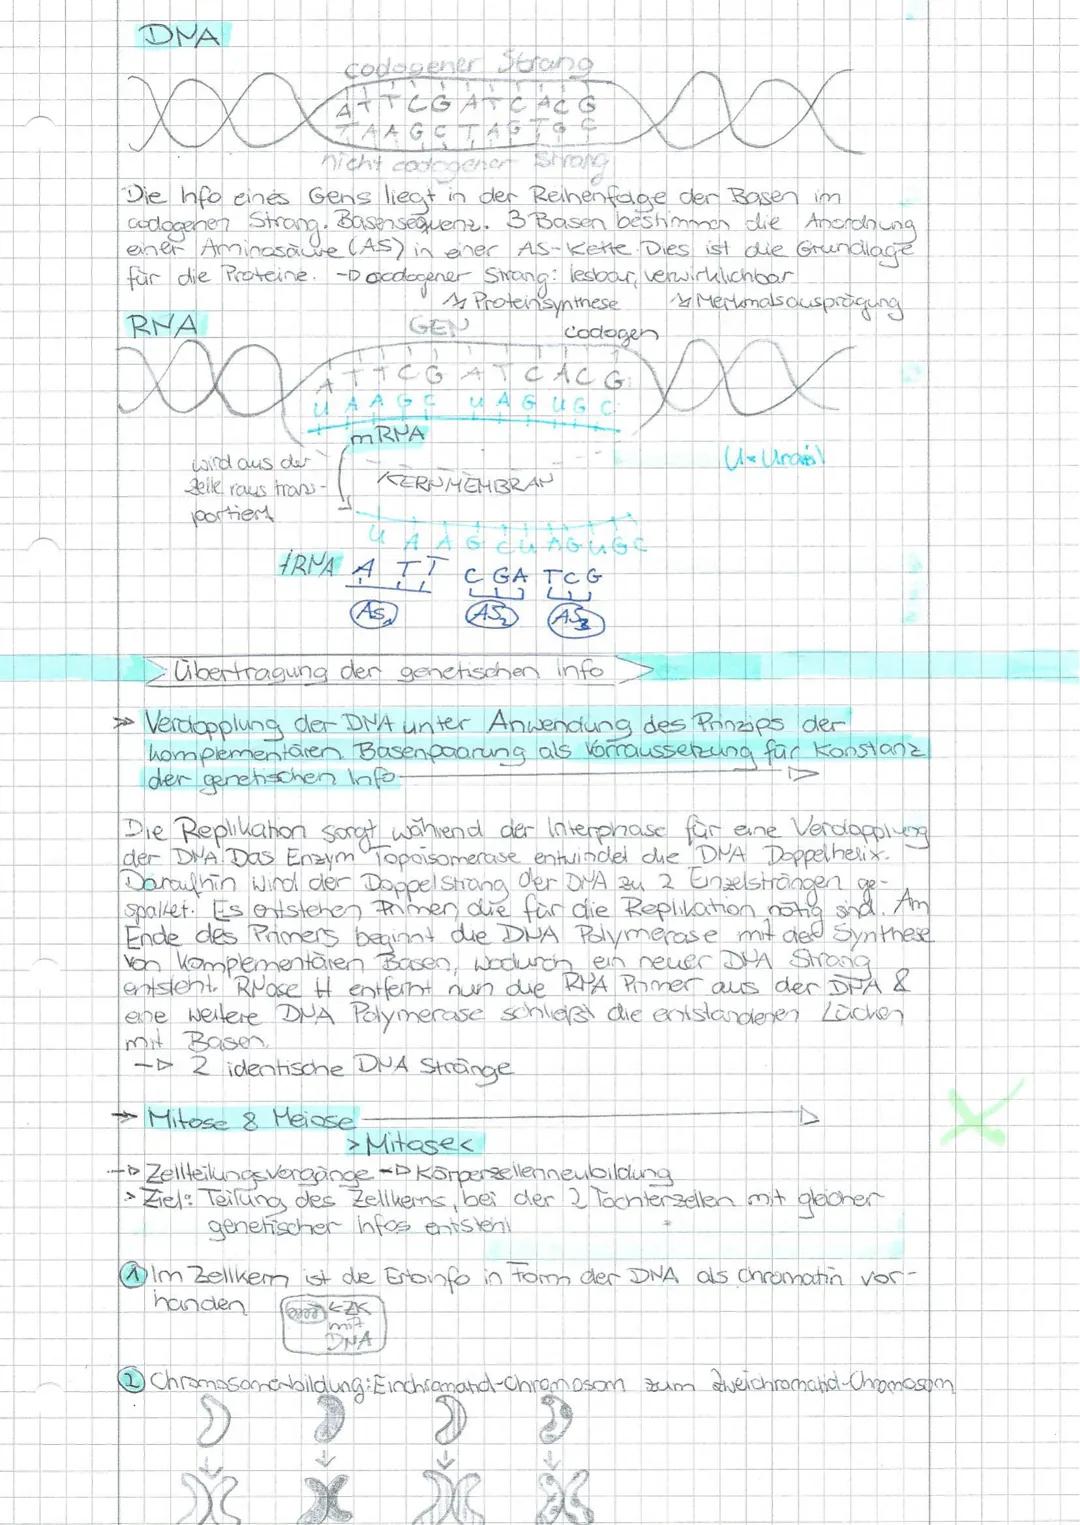 DNA
codogener Strang
A T T C G A T C A C G
T A A G C T A G T G C
nicht codogener Strang
Die Info eines Gens liegt in der Reihenfolge der Basen im
codogenen Strang. Basensequenz. 3 Basen bestimmen die Anordnung
einer Aminosäure (AS) in einer AS-Kette. Dies ist die Grundlage
für die Proteine. → codogener Strang: lesbar, verwirklichbar
↘ Proteinsynthese ↘ Merkmalsausprägung
RNA GEN codogen
A T T C G A T C A C G
U A A G C U A G U G C
mRNA
wird aus der
Zelle raus trans-
portiert
U = Uracil
KERNMEMBRAN
U A A G C U A G U G C
tRNA A T T C G A T C G
AS1 AS2 AS3
Übertragung der genetischen Info
» Verdopplung der DNA unter Anwendung des Prinzips der
komplementären Basenpaarung als Vorraussetzung für Konstanz
der genetischen Info
Die Replikation sorgt während der Interphase für eine Verdopplung
der DNA. Das Enzym Topoisomerase entwindet die DNA Doppelhelix.
Daraufhin wird der Doppelstrang der DNA zu 2 Einzelsträngen ge-
spaltet. Es entstehen Primer, die für die Replikation nötig sind. Am
Ende des Primers beginnt die DNA Polymerase mit der Synthese
von komplementären Basen, wodurch ein neuer DNA Strang
entsteht. RNase H entfernt nun die RNA Primer aus der DNA &
eine weitere DNA Polymerase schließt die entstandenen Lücken
mit Basen.
→ 2 identische DNA Stränge
→ Mitose & Meiose
>Mitose<
→ Zellteilungsvorgänge → Körperzellenneubildung
> Ziel: Teilung des Zellkerns, bei der 2 Tochterzellen mit gleicher
genetischer infos entsteht
1 Im Zellkern ist die Erbinfo in Form der DNA als Chromatin vor-
handen
← ZK
mit
DNA
2 Chromosomenbildung: Einchromatid-Chromosom zum Zweichromatid-Chromosom